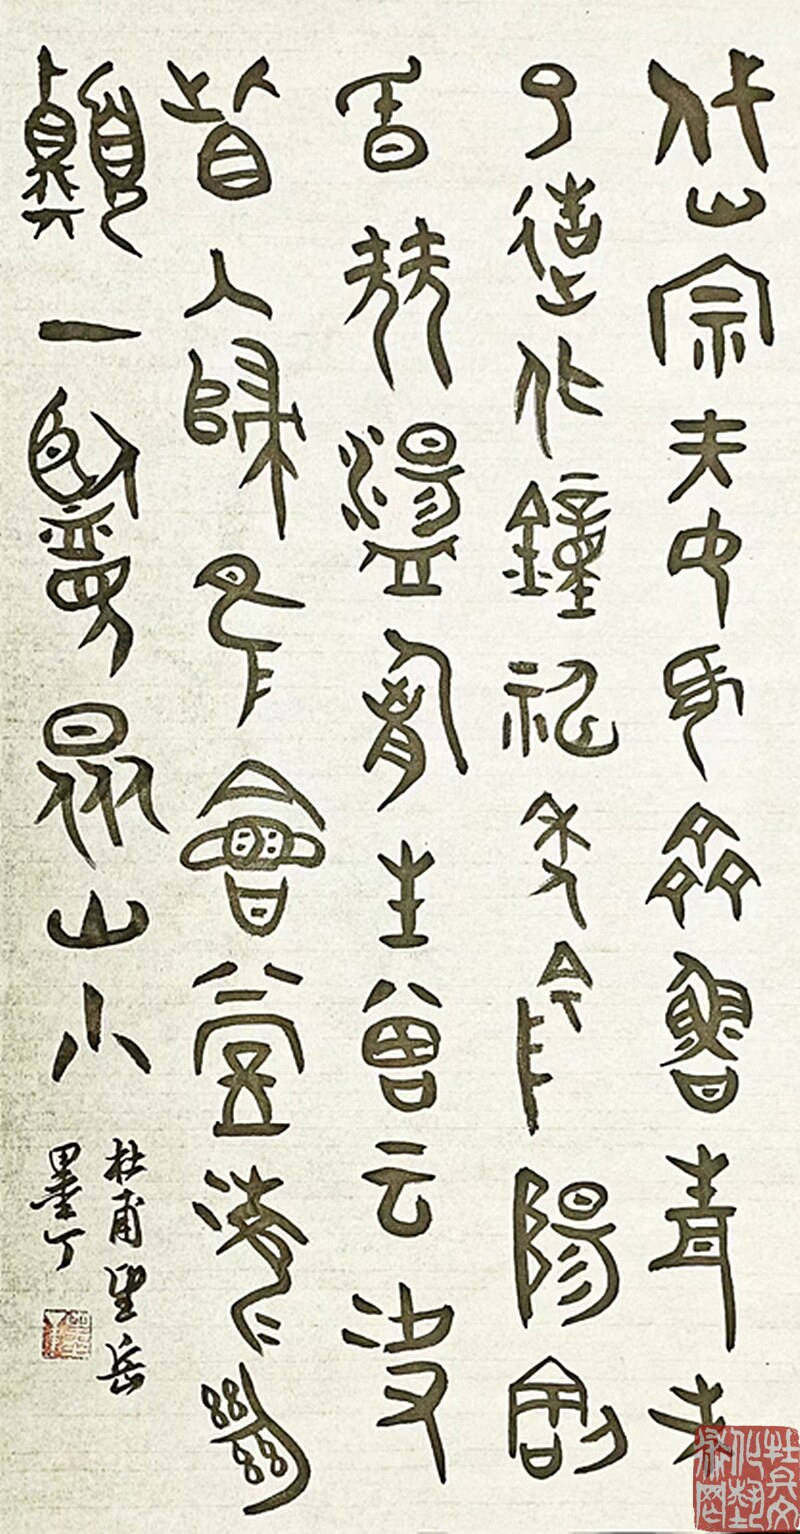 岱宗夫如何齊魯青未
了造化鐘神秀陰陽割
昏曉盪胸生曾云決
眥入歸鳥會當凌絕
頂一覽眾山小
杜甫望岳
墨丁